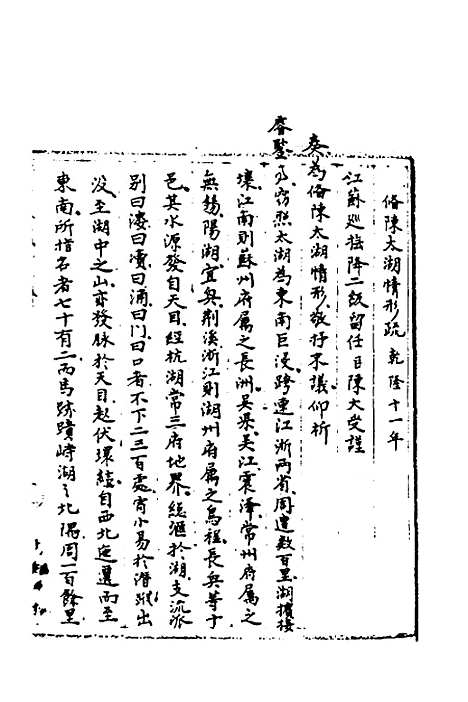 條陳太湖情形疏 乾隆十一年
江蘇巡撫降二級留任臣陳大受謹
奏為條陳太湖情形敬抒末議仰祈
睿鑒事竊照太湖為東南巨浸跨連江浙兩省周遭數百里湖擴接
壤江南則蘇州府屬之長洲吳縣吳江震澤常州府屬之
無錫陽湖宜興荊溪浙江則湖州府屬之烏程長興等十
邑其水源發自天目經杭湖常三府地界總滙於湖支流派
別曰溇曰瀆曰涌曰門曰口者不下二三百處宵小易於潛蹤出
沒至湖中之山亦發脉於天目起伏環繞自西北迤邐而至
東南所指名者七十有二而馬跡蹟峙湖之北隅周一百餘里